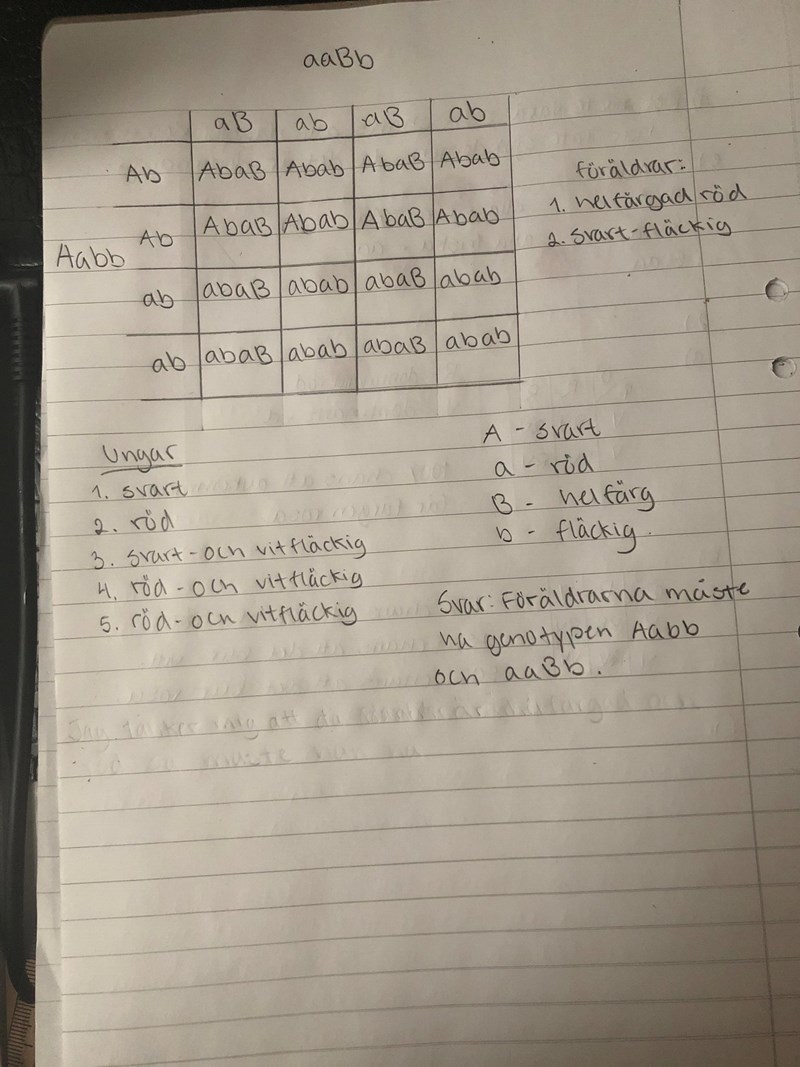 aaBb
aB ab aB ab
Ab AbaB Abab AbaB Abab
Ab AbaB Abab AbaB Abab
Aabb
ab abaB abab abaB abab
ab abaB abab abaB abab
föräldrar:
1. helfärgad röd
2. svart-fläckig
Ungar
1. svart
2. röd
3. svart-och vitfläckig
4. röd-och vitfläckig
5. röd-och vitfläckig
A - svart
a - röd
B - helfärg
b - fläckig.
Svar: Föräldrarna måste
ha genotypen Aabb
och aaBb.